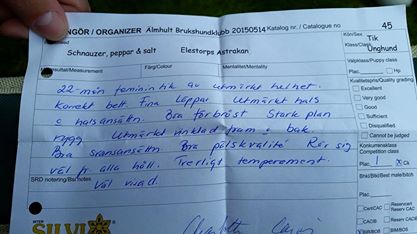 NGÖR / ORGANIZER Älmhult Brukshundklubb 20150514 Katalog nr. / Catalogue no 45
Schnauzer, peppar & salt Elestorps Astrakan
Kön/Sex
Tik
Klass/Class
Unghund
Resultat/Measurement Färg/Colour Mentalitet/Mentality
Valpklass/Puppy class
Plac. Hp
Kvalitetspris/Quality grading
Excellent
Very good
Good
Sufficient
Disqualified
Cannot be judged
Konkurrensklass
Competition class
Plac. 1 Ck
22-mån feminin tik av utmärkt helhet.
Korrekt bett Fina läppar Utmärkt hals
o halsansättn. Bra förbröst Stark plan
rygg Utmärkt vinklad fram o bak.
Bra svansansättn Bra pälskvalité Rör sig
väl fr alla håll. Trevligt temperement.
Väl visad.
SRD notering/Bsi notes
Plac.
CertCAC Reserv Cert
CACIB
BIM/BOS